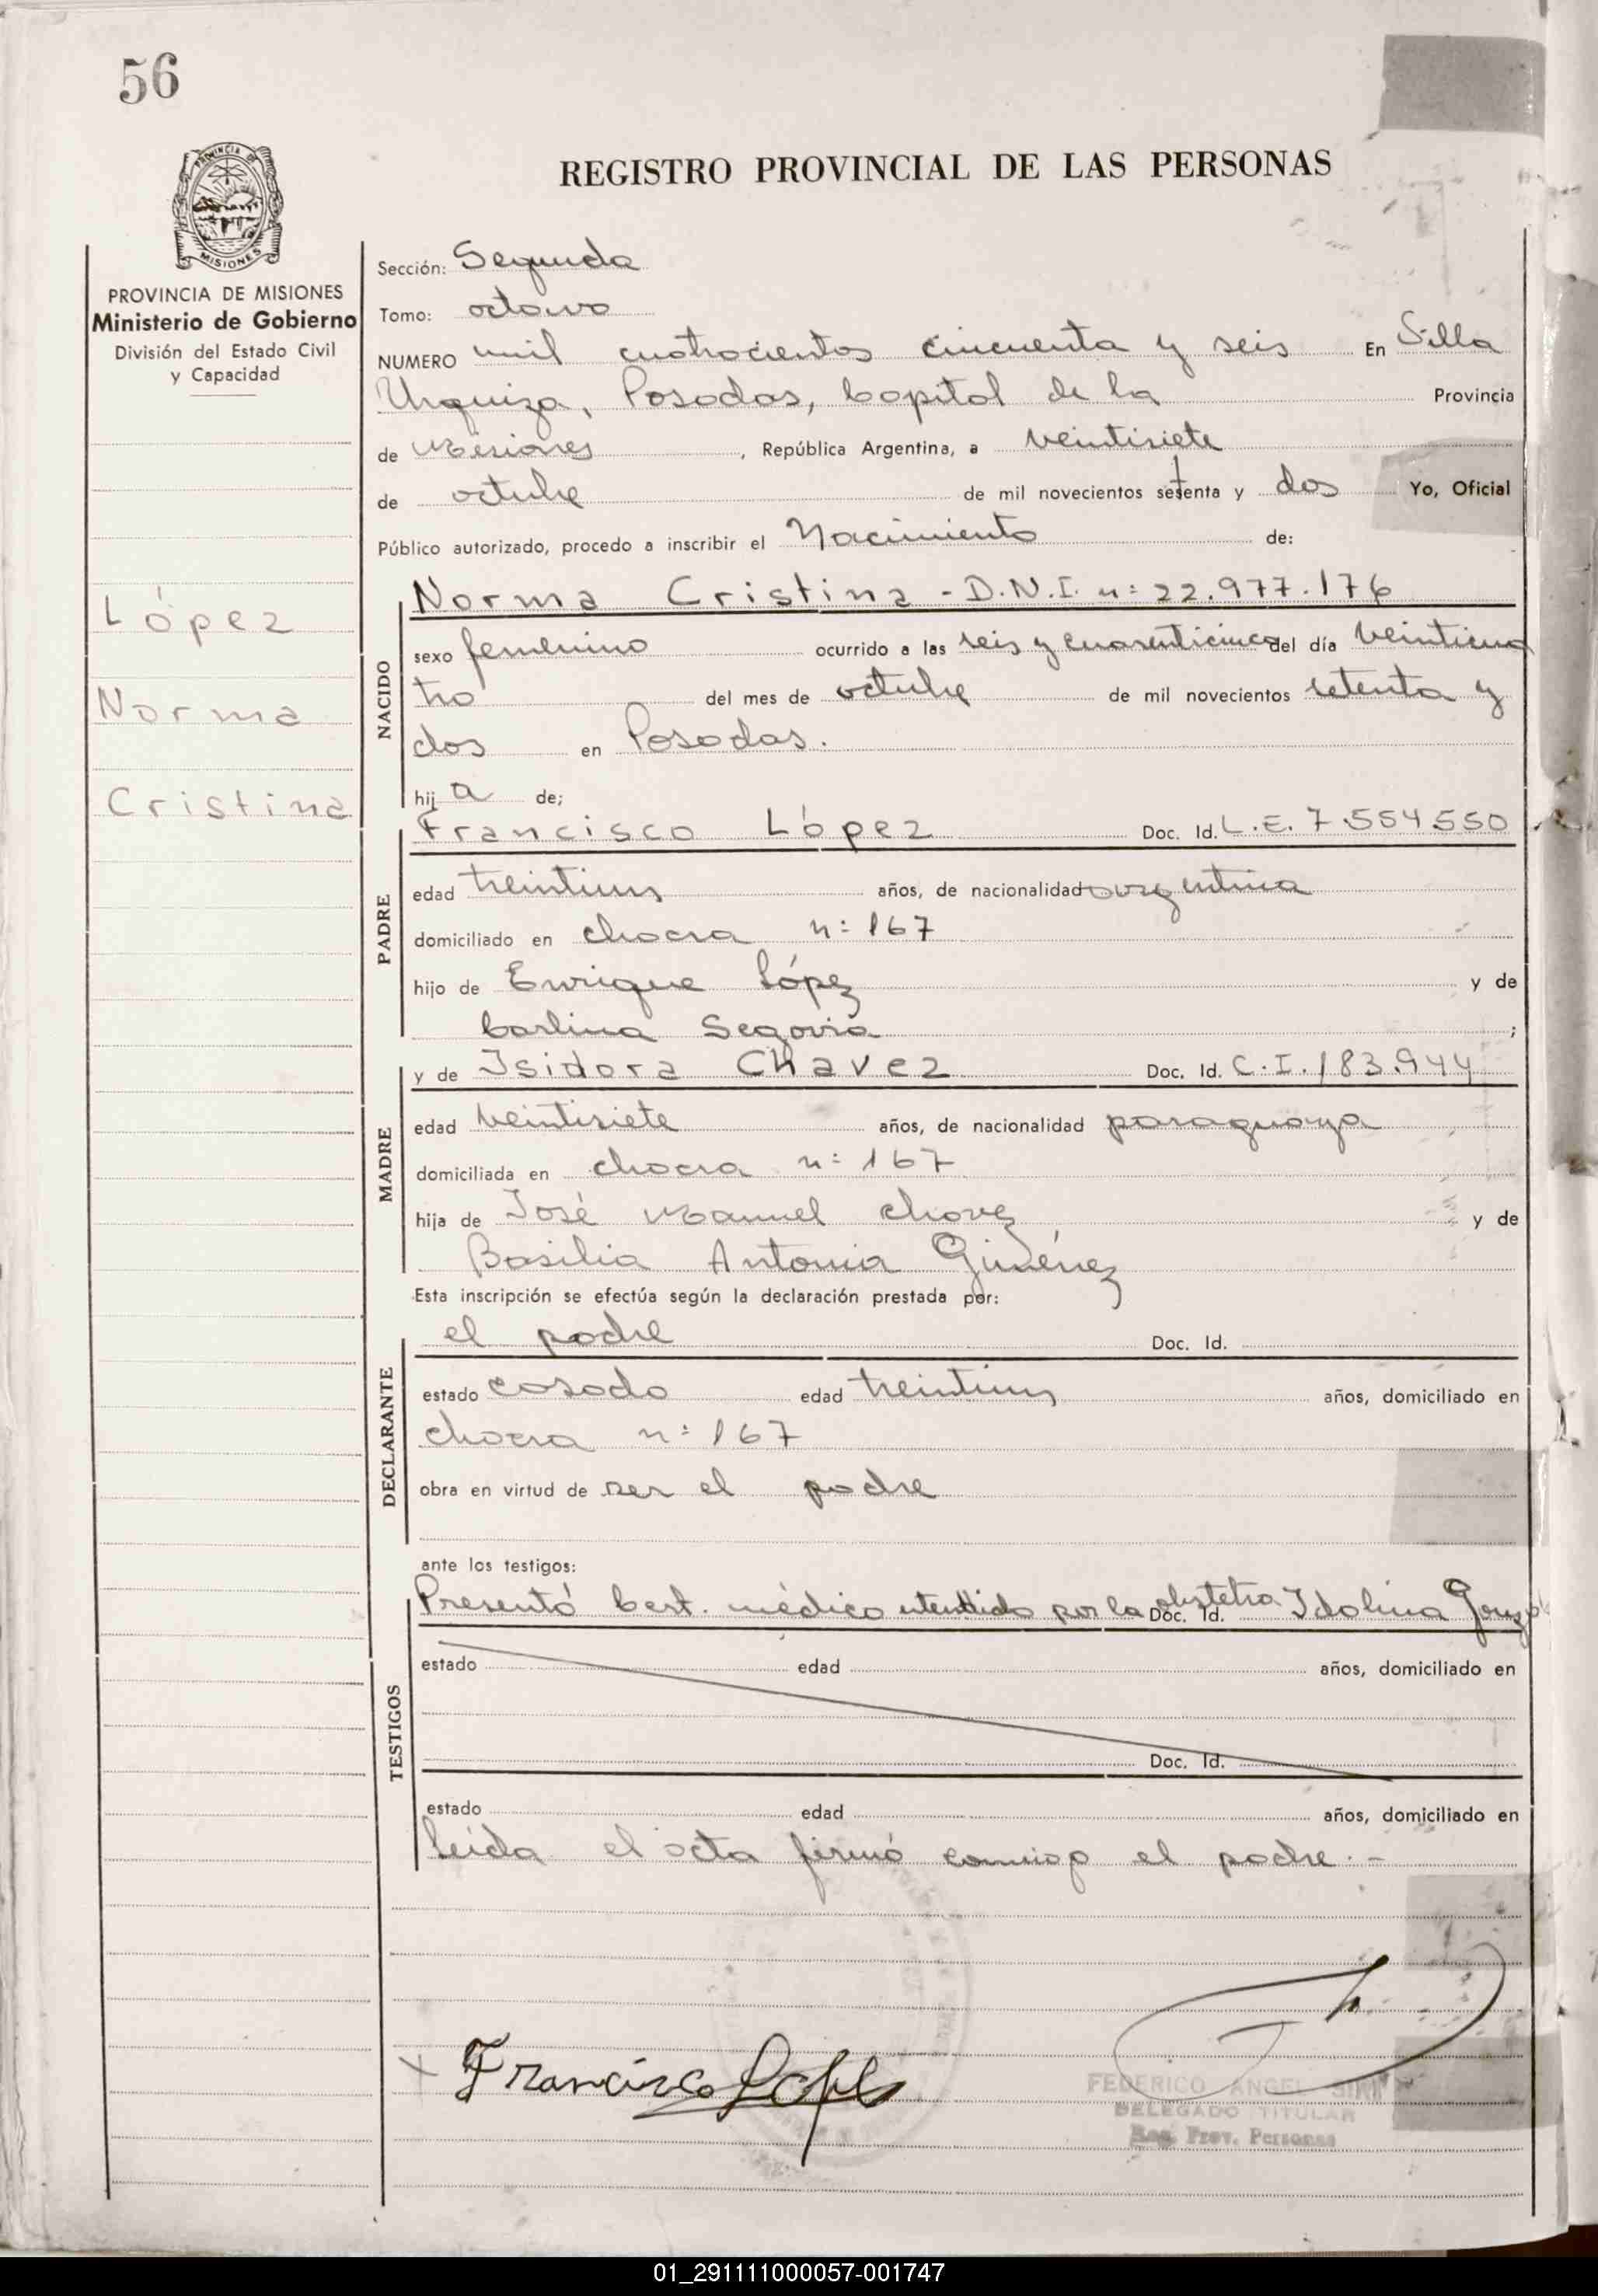 56
REGISTRO PROVINCIAL DE LAS PERSONAS
PROVINCIA DE MISIONES
Ministerio de Gobierno
División del Estado Civil
y Capacidad
López
Norma
Cristina
Sección: Segunda
Tomo: octavo
NUMERO mil cuatrocientos cincuenta y seis En Villa
Urquiza, Posadas, Capital de la Provincia
de Misiones, República Argentina, a veintisiete
de octubre de mil novecientos setenta y dos Yo, Oficial
Público autorizado, procedo a inscribir el Nacimiento de:
NACIDO
Norma Cristina - D.N.I. n: 22.977.176
sexo femenino ocurrido a las seis y cuarenticinco del día veinticua
tro del mes de octubre de mil novecientos setenta y
dos en Posadas.
hija de;
PADRE
Francisco López Doc. Id. L.E. 7.554.550
edad treintiun años, de nacionalidad argentina
domiciliado en chacra n: 167
hijo de Enrique López y de
Carlina Segovia ;
MADRE
y de Isidora Chavez Doc. Id. C.I. 183.944
edad veintisiete años, de nacionalidad paraguaya
domiciliada en chacra n: 167
hija de José Manuel Chavez y de
Basilia Antonia Giménez
Esta inscripción se efectúa según la declaración prestada por:
DECLARANTE
el padre Doc. Id.
estado casado edad treintiun años, domiciliado en
chacra n: 167
obra en virtud de ser el padre
ante los testigos:
TESTIGOS
Presentó Cert. médico extendido por la obstetra Idolina Gonzál
Doc. Id.
estado edad años, domiciliado en
Doc. Id.
estado edad años, domiciliado en
leída el acta firmó conmigo el padre.-
Francisco Lopez
FEDERICO ANGEL
DELEGADO TITULAR
Reg. Prov. Personas
01_291111000057-001747